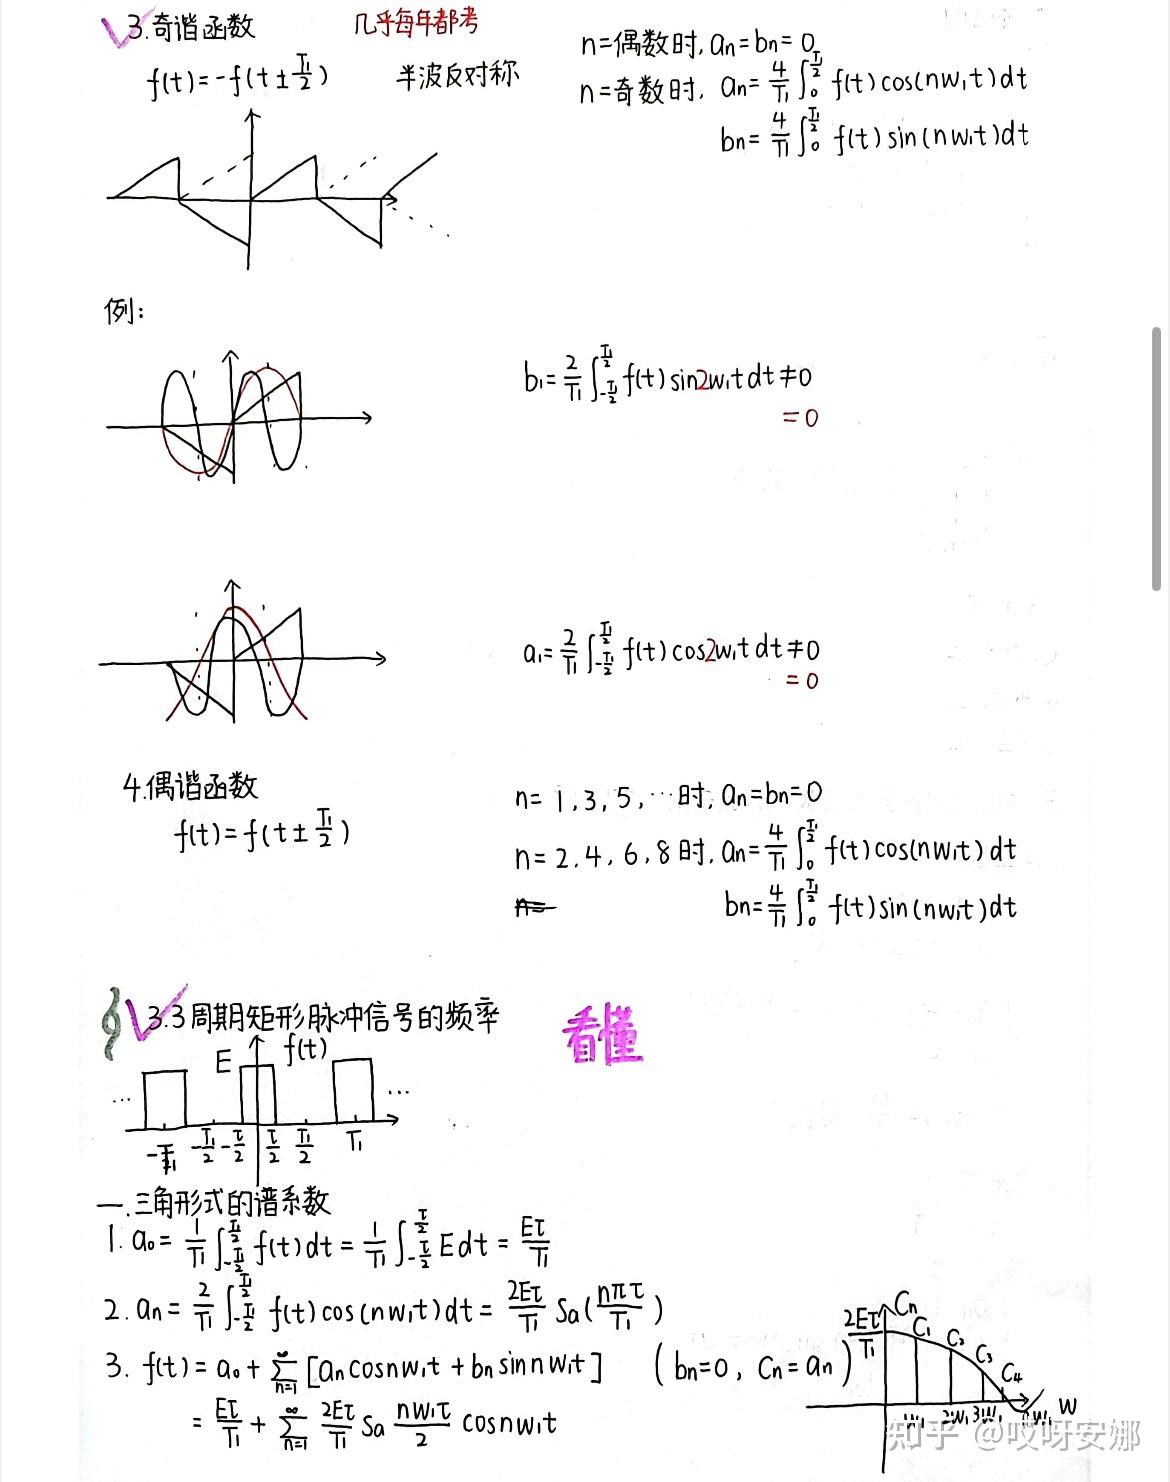 3.奇谐函数 几乎每年都考
f(t)=-f(t±T₁/2) 半波反对称
n=偶数时, aₙ=bₙ=0
n=奇数时, aₙ=4/T₁ ∫₀^(T₁/2) f(t)cos(nw₁t)dt
bₙ=4/T₁ ∫₀^(T₁/2) f(t)sin(nw₁t)dt
例:
b₁=2/T₁ ∫_(-T₁/2)^(T₁/2) f(t)sin2w₁tdt≠0
=0
a₁=2/T₁ ∫_(-T₁/2)^(T₁/2) f(t)cos2w₁tdt≠0
=0
4.偶谐函数
f(t)=f(t±T₁/2)
n=1,3,5,…时, aₙ=bₙ=0
n=2.4.6.8时, aₙ=4/T₁ ∫₀^(T₁/2) f(t)cos(nw₁t)dt
n=
bₙ=4/T₁ ∫₀^(T₁/2) f(t)sin(nw₁t)dt
§3.3周期矩形脉冲信号的频率 看懂
E f(t)
… …
-T₁ -T₁/2 -τ/2 τ/2 T₁/2 T₁
一.三角形式的谱系数
1. a₀=1/T₁ ∫_(-T₁/2)^(T₁/2) f(t)dt=1/T₁ ∫_(-τ/2)^(τ/2) Edt=Eτ/T₁
2. aₙ=2/T₁ ∫_(-T₁/2)^(T₁/2) f(t)cos(nw₁t)dt=2Eτ/T₁ Sa(nπτ/T₁)
3. f(t)=a₀+∑_(n=1)^∞ [aₙcosnw₁t+bₙsinnw₁t] (bₙ=0, Cₙ=aₙ)
=Eτ/T₁+∑_(n=1)^∞ 2Eτ/T₁ Sa nw₁τ/2 cosnw₁t
Cₙ
2Eτ/T₁ C₁ C₂ C₃ C₄
w₁ 2w₁ 3w₁ W
知乎 @哎呀安娜